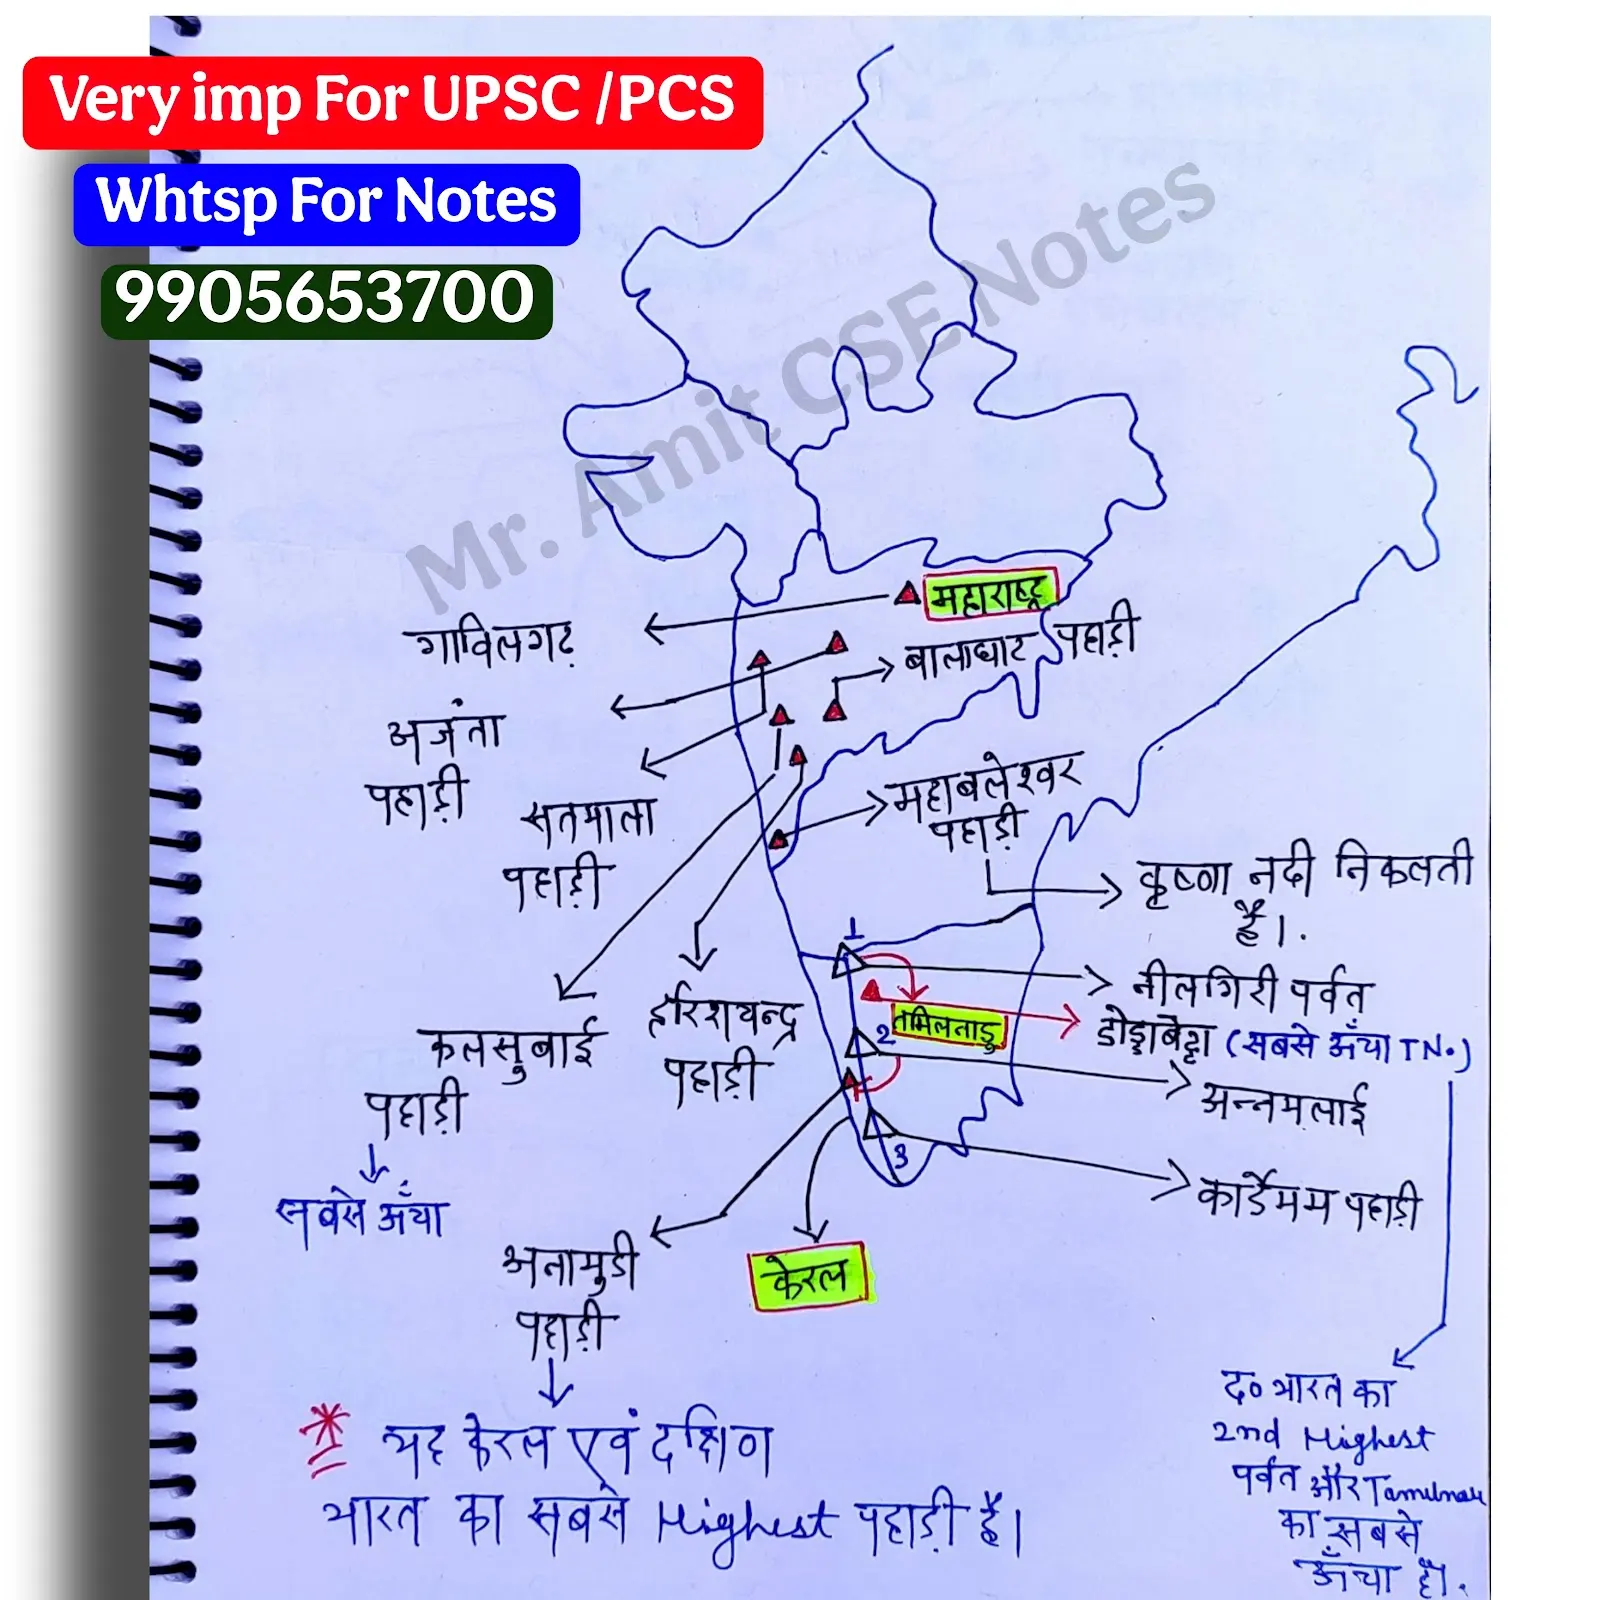 Very imp For UPSC /PCS
Whtsp For Notes
9905653700
Mr. Amit CSE Notes
महाराष्ट्र
गाविलगढ़
बालाघाट पहाड़ी
अजंता
पहाड़ी
सतमाला
पहाड़ी
महाबलेश्वर
पहाड़ी
कृष्णा नदी निकलती
है।.
1
नीलगिरी पर्वत
कलसुबाई
पहाड़ी
सबसे ऊँचा
हरिशचन्द्र
पहाड़ी
तमिलनाडु
डोड्डाबेट्टा (सबसे ऊँचा TN.)
2
अन्नमलाई
3
कार्डेमम पहाड़ी
अनामुडी
पहाड़ी
केरल
यह केरल एवं दक्षिण
भारत का सबसे Highest पहाड़ी है।
द० भारत का
2nd Highest
पर्वत और Tamilnadu
का सबसे
ऊँचा है।.